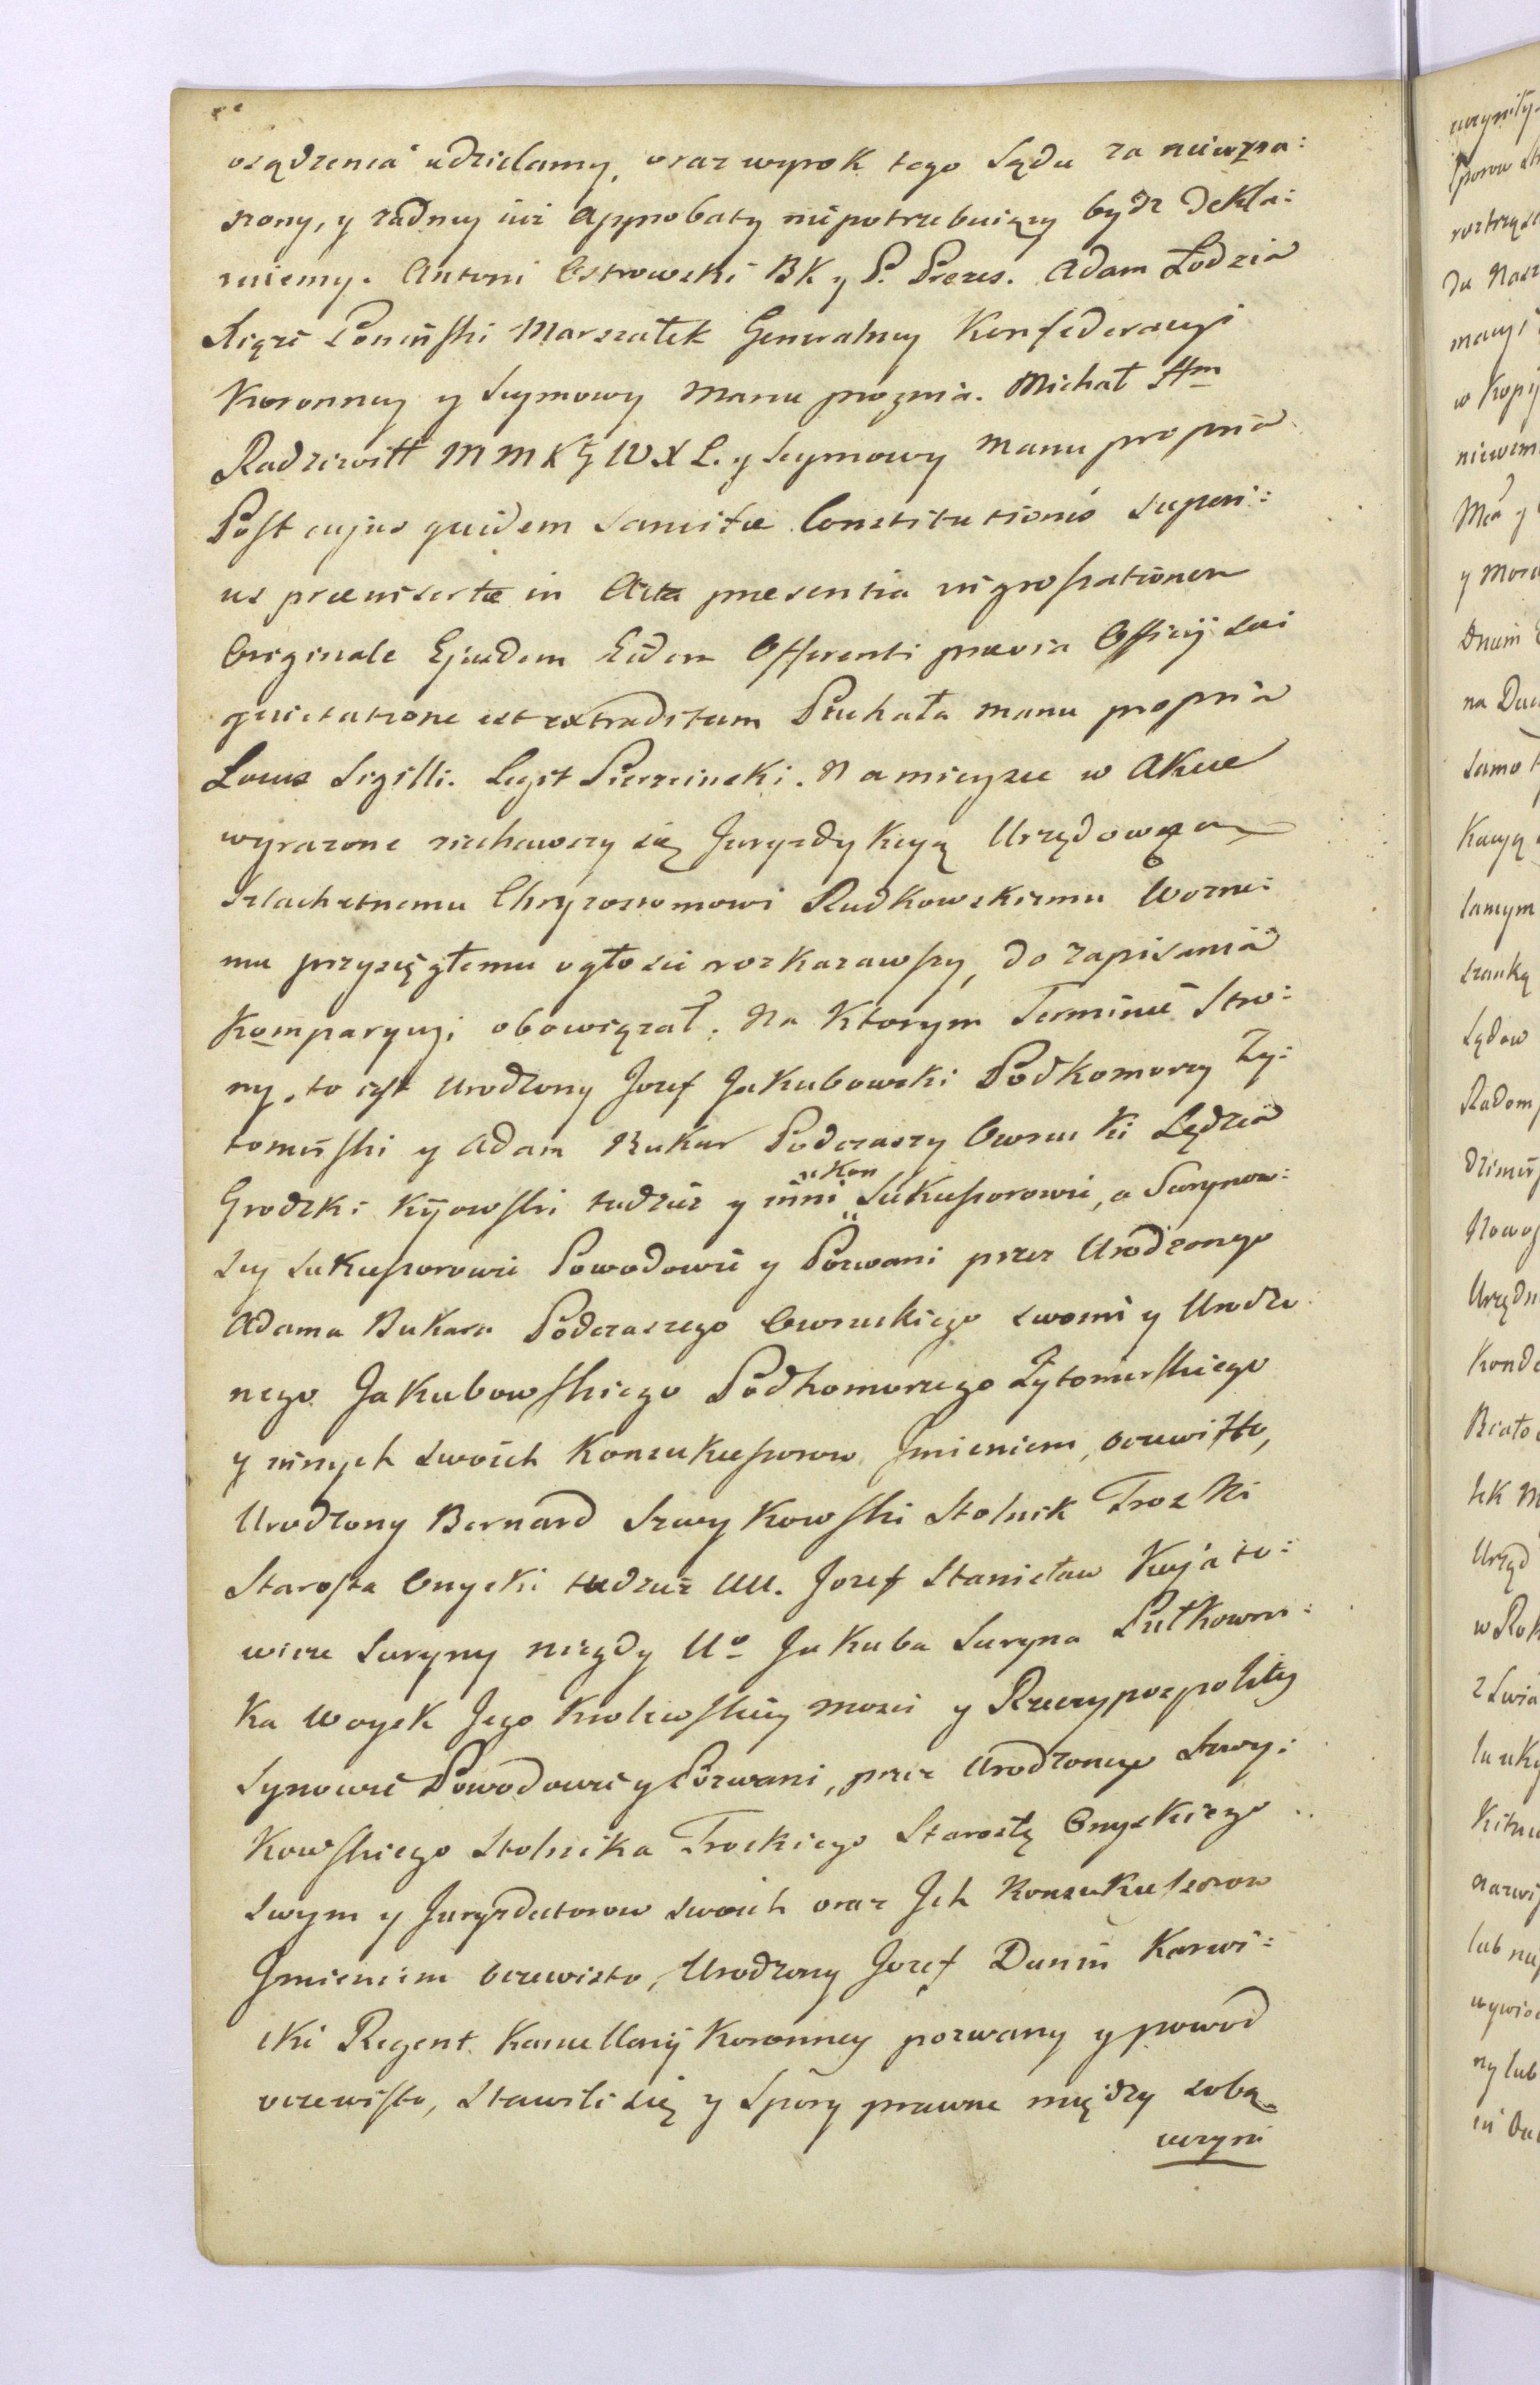 osądzenia udzielamy, oraz wyrok tego Sądu za niewzru:
szony, y żadney iuż Approbaty niepotrzebuiący bydz dekla:
ruiemy. Antoni Ostrowski BK y P. Prezes. Adam Łodzia
Xiąże Poninski Marszałek Generalney Konfederacyi
Koronney y Seymowy Manu propria. Michał Hm
Radziwiłł M M K G W X L. y Seymowy Manu propria
Post cujus quidem Sancitæ Constitutionis superi:
us præinsertæ in Acta præsentia ingrossationem
Originale Ejusdem Eidem Offerenti prævia Officij sui
quietatione est extraditum Puchała manu propria
Locus Sigilli. Legit Pierzcinski. Na mieysce w Akcie
wyrazone ziechawszy się Juryzdykcyą Urzędową
Szlachetnemu Chryzostomowi Rudkowskiemu Wozne:
mu przysięgłemu ogłosić rozkazawszy, do zapisania
Komparycyi obowiązał. Na Ktorym Terminie Stro:
ny, to iest Urodzony Jozef Jakubowski Podkomorzy Ży:
tomirski y Adam Bukar Podczaszy Owrucki Sędzia
Grodzki Kijowski tudzież y inni Kon Sukcessorowie, a Surynow:
scy Sukcessorowie Powodowie y Pozwani przez Urodzonego
Adama Bukara Podczaszego Owruckiego swoim y Urodzo
nego Jakubowskiego Podkomorzego Żytomirskiego
y innych swoich Konsukcessorow Jmieniem, oczewisto,
Urodzony Bernard Szwykowski Stolnik Trocki
Starosta Onyski tudzież UU. Jozef Stanisław Kajeto:
wicze Suryny niegdy Uo Jakuba Suryna Pułkowni:
ka Woysk Jego Krolewskiey Mosci y Rzeczypospolitey
Synowie Powodowie y Pozwani, przez Urodzonego Szwy:
kowskiego Stolnika Trockiego Starostę Onyskiego
swym y Juryzdatorow swoich oraz Jch Konsukcessorow
Jmieniem oczewisto, Urodzony Jozef Dunin Karwi:
cki Regent Kancellarij Koronney pozwany y powod
oczewisto, Stawili się y Spory prawne między sobą
uczyni